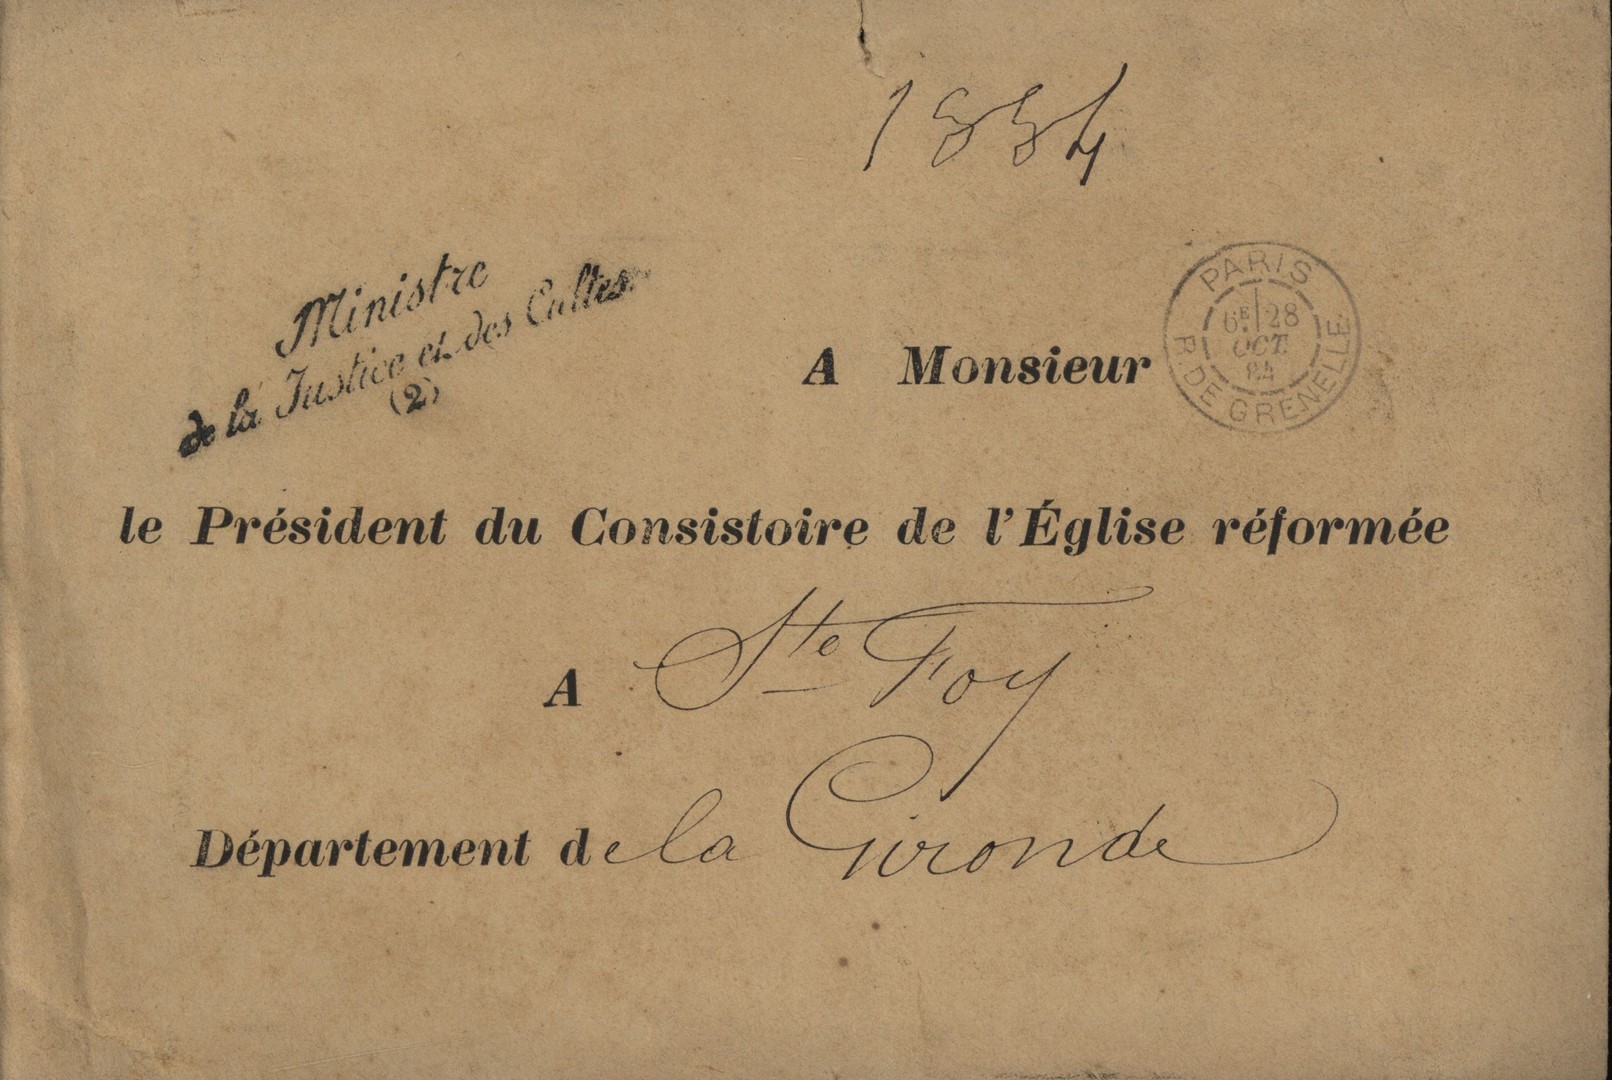 1884
Ministre
de la Justice et des Cultes
(2)
A Monsieur
PARIS
6E 28
OCT
84
R. DE GRENELLE
le Président du Consistoire de l'Église réformée
A Ste Foy
Département de la Gironde